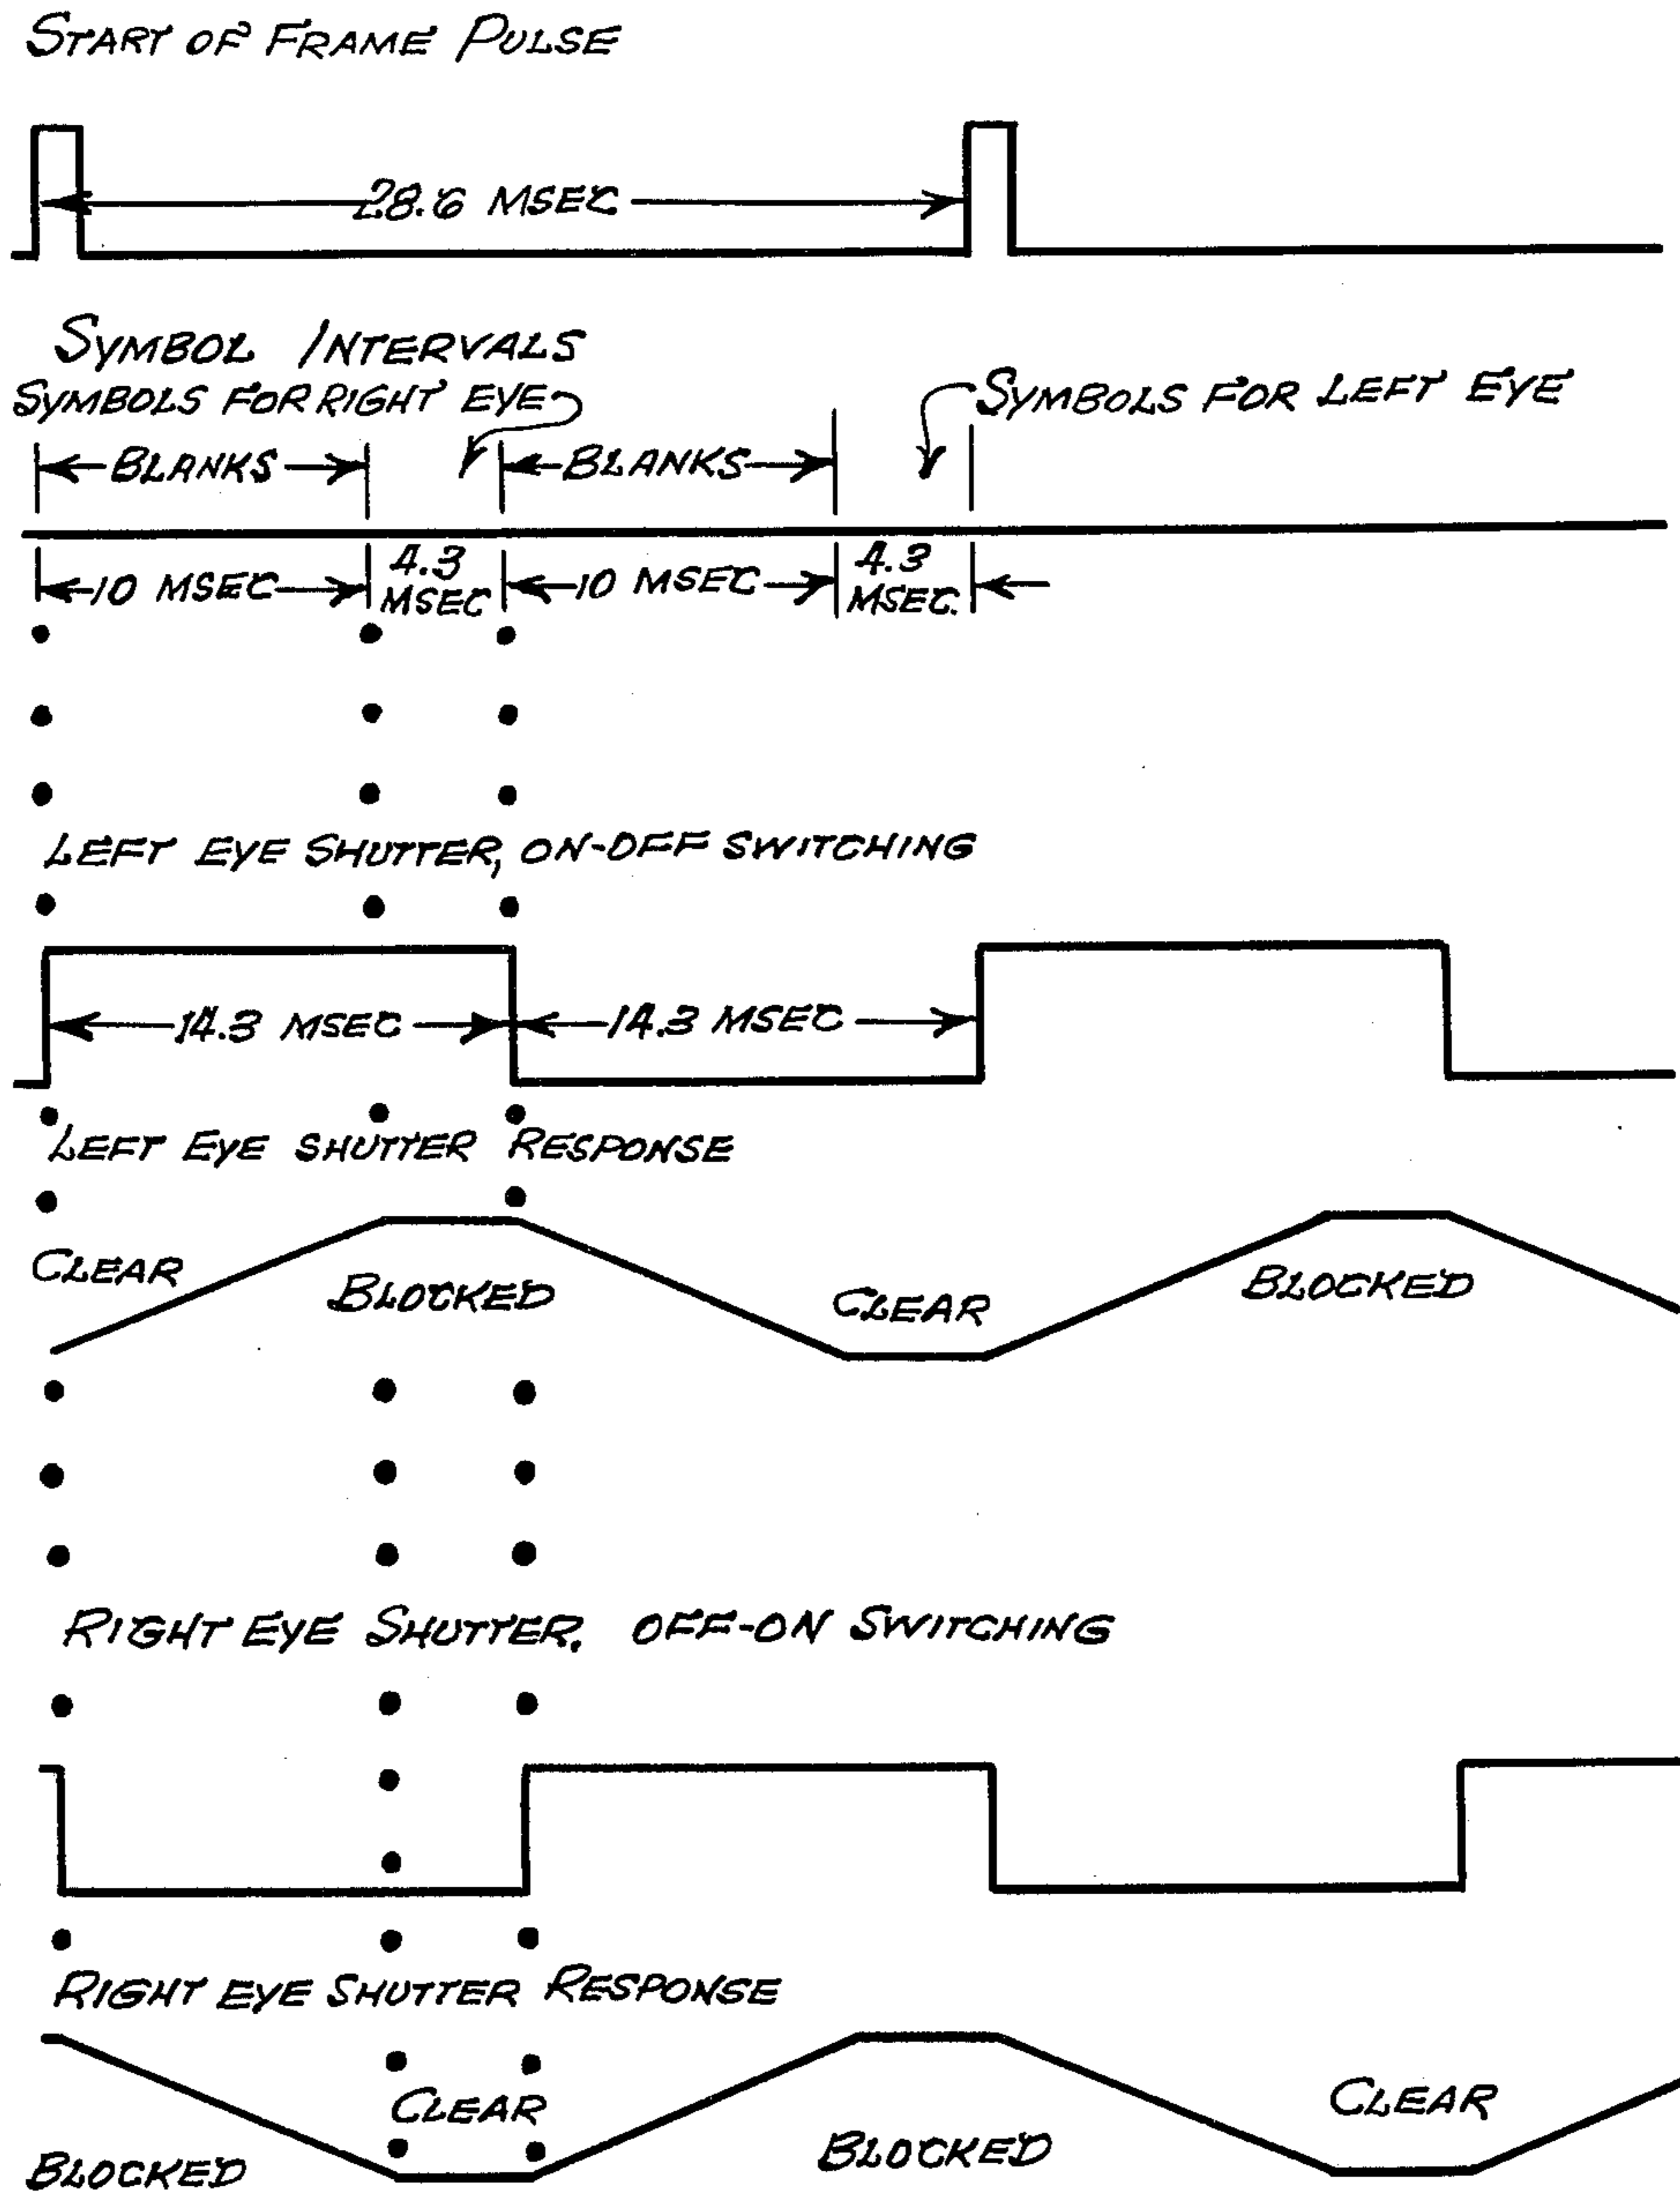 START OF FRAME PULSE
28.6 MSEC
SYMBOL INTERVALS
SYMBOLS FOR RIGHT EYE
SYMBOLS FOR LEFT EYE
BLANKS BLANKS
10 MSEC 4.3 MSEC 10 MSEC 4.3 MSEC.
LEFT EYE SHUTTER, ON-OFF SWITCHING
14.3 MSEC 14.3 MSEC
LEFT EYE SHUTTER RESPONSE
CLEAR BLOCKED CLEAR BLOCKED
RIGHT EYE SHUTTER, OFF-ON SWITCHING
RIGHT EYE SHUTTER RESPONSE
BLOCKED CLEAR BLOCKED CLEAR